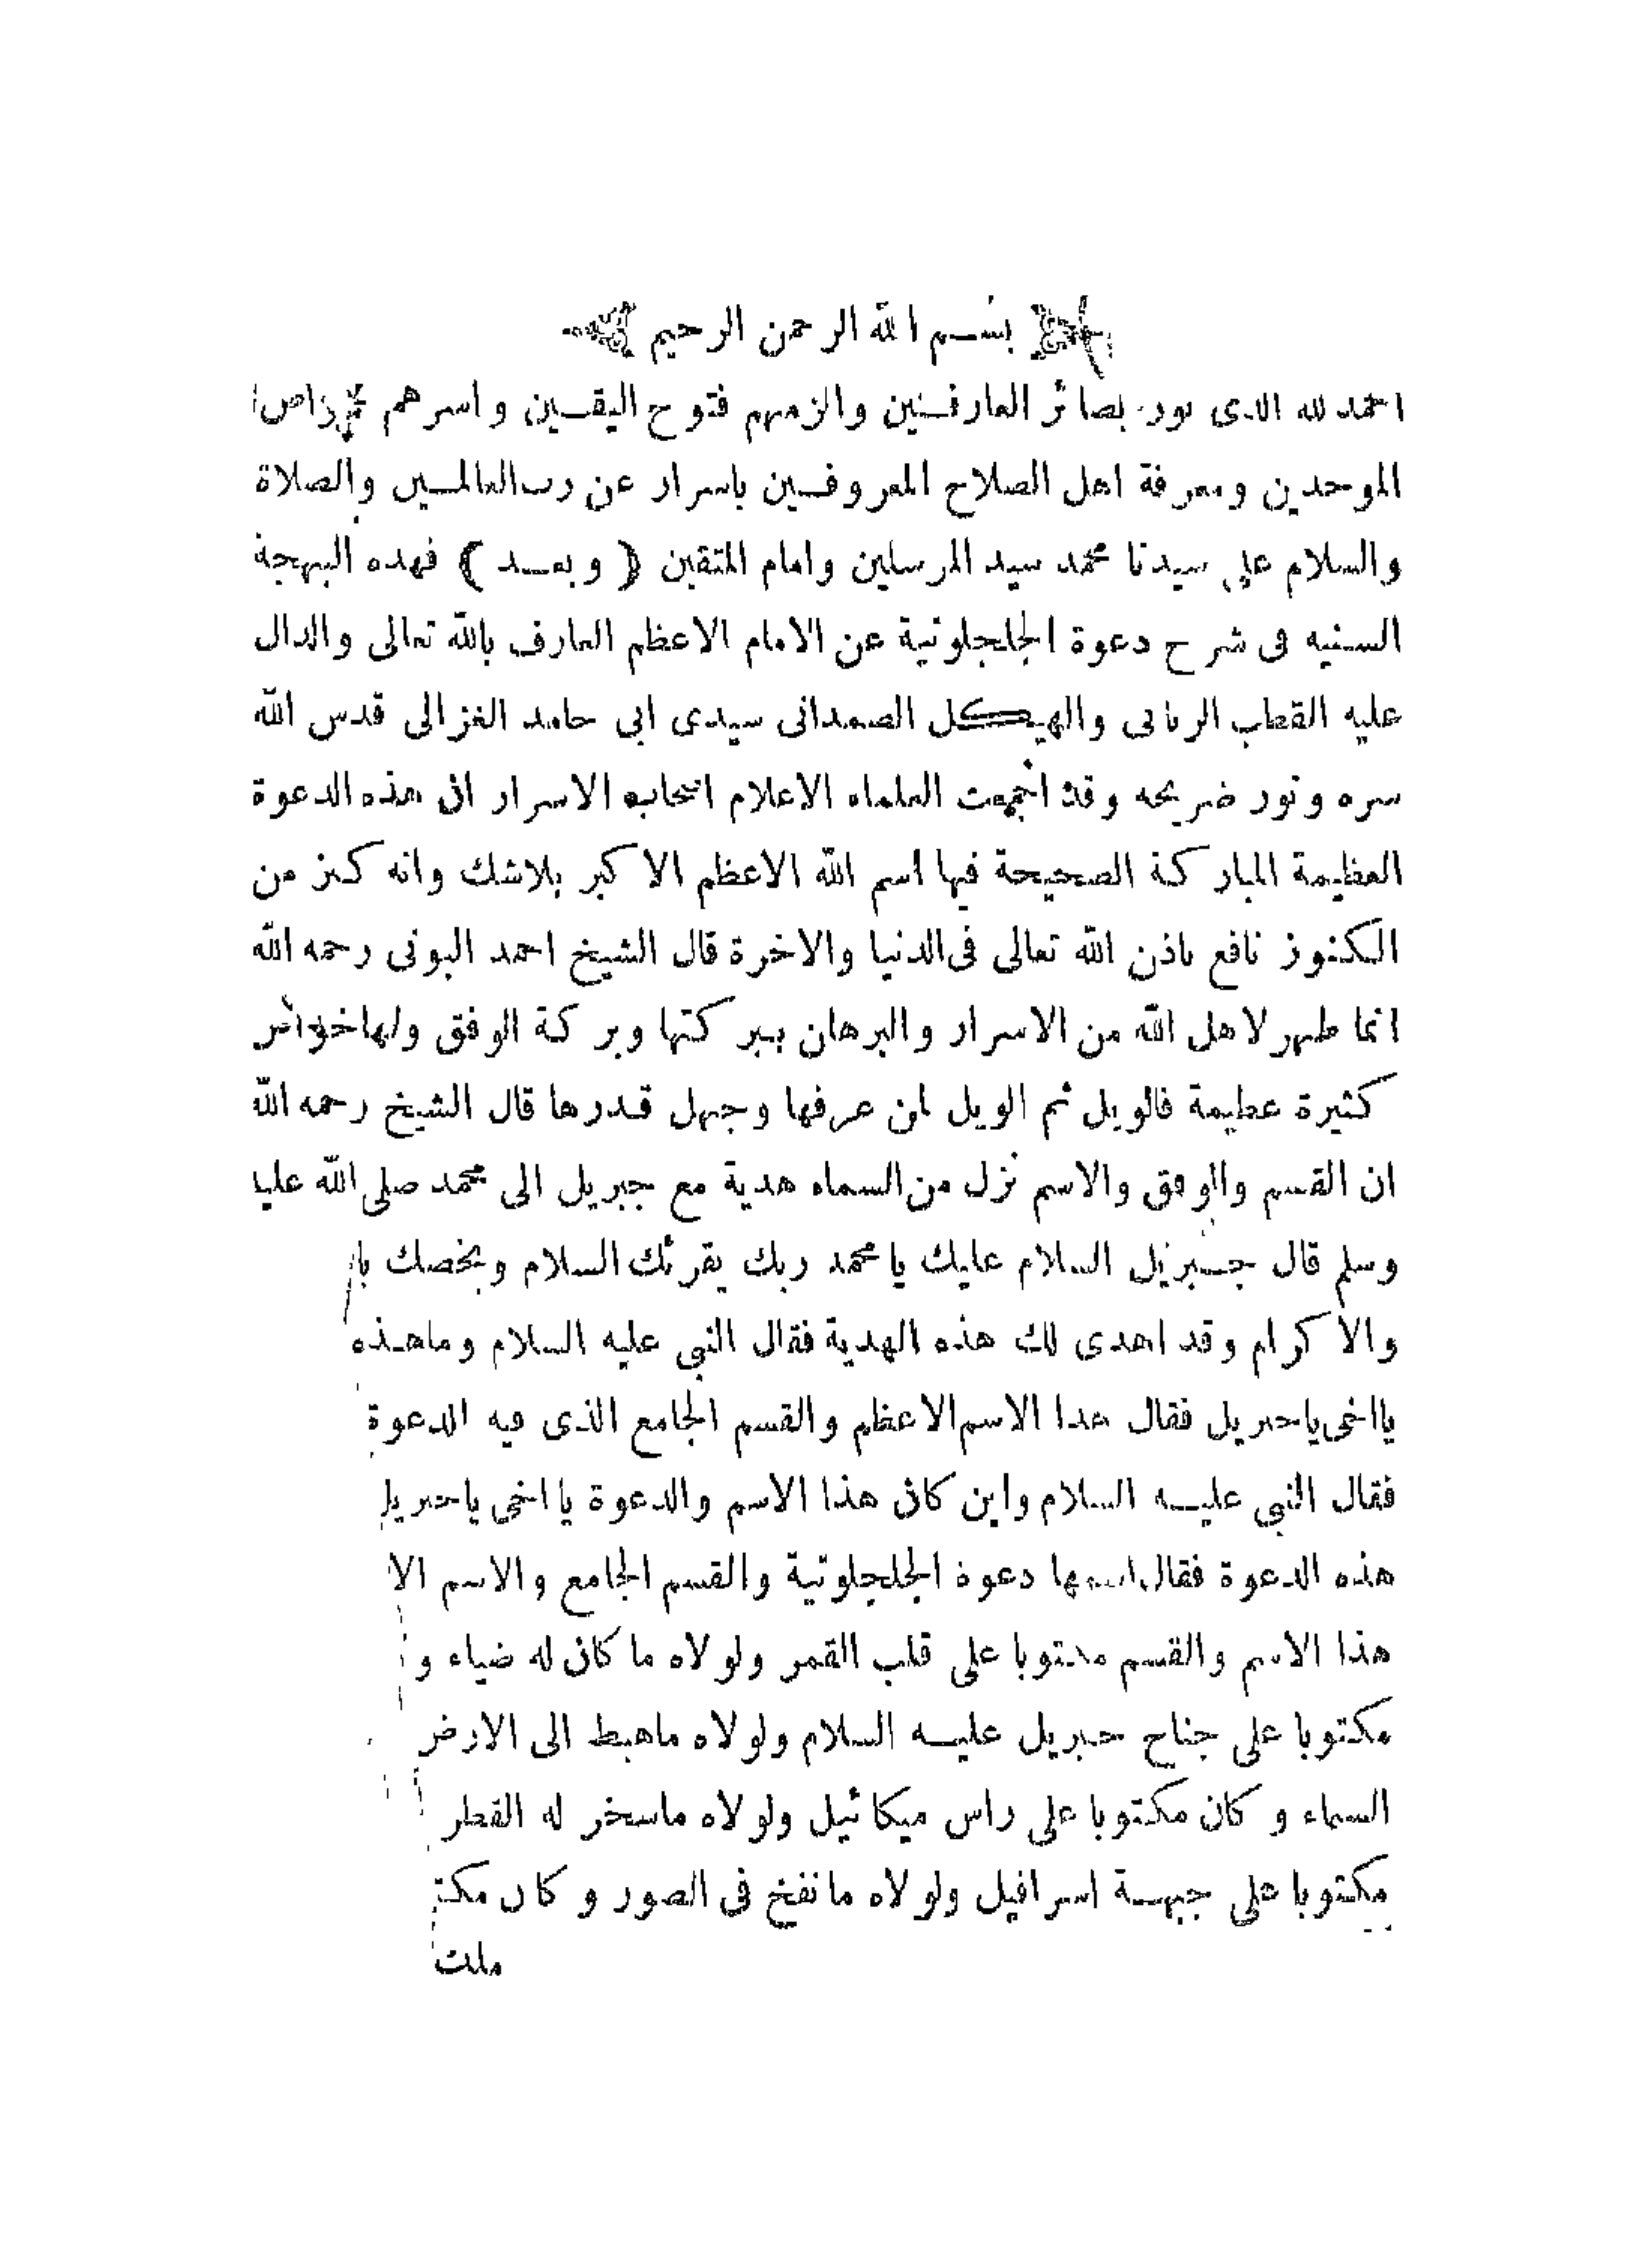 بسم الله الرحمن الرحيم
الحمد لله الذى نور بصائر العارفين والزمهم فتوح اليقين واسرهم
الموحدين ومعرفة اهل الصلاح المعروفين باسرار عن رب العالمين والصلاة
والسلام على سيدنا محمد سيد المرسلين وامام المتقين ( وبعد ) فهذه البهجة
السنيه فى شرح دعوة الجلجلوتية عن الامام الاعظم العارف بالله تعالى والدال
عليه القطب الربانى والهيكل الصمدانى سيدى ابى حامد الغزالى قدس الله
سره ونور ضريحه وقد اجمعت العلماء الاعلام اصحاب الاسرار ان هذه الدعوة
العظيمة المباركة الصحيحة فيها اسم الله الاعظم الاكبر بلاشك وانه كنز من
الكنوز نافع باذن الله تعالى فى الدنيا والاخرة قال الشيخ احمد البونى رحمه الله
انما ظهر لاهل الله من الاسرار والبرهان ببركتها وبركة الوفق ولها خواص
كثيرة عظيمة فالويل ثم الويل لمن عرفها وجهل قدرها قال الشيخ رحمه الله
ان القسم والوفق والاسم نزل من السماء هدية مع جبريل الى محمد صلى الله عليه
وسلم قال جبريل السلام عليك يا محمد ربك يقرئك السلام ويخصك
والاكرام وقد اهدى لك هذه الهدية فقال النبى عليه السلام وماهذه
يااخى ياجبريل فقال هذا الاسم الاعظم والقسم الجامع الذى فيه الدعوة
فقال النبى عليه السلام واين كان هذا الاسم والدعوة يااخى ياجبريل
هذه الدعوة فقال اسمها دعوة الجلجلوتية والقسم الجامع والاسم الا
هذا الاسم والقسم مكتوبا على قلب القمر ولولاه ما كان له ضياء و
مكتوبا على جناح جبريل عليه السلام ولولاه ماهبط الى الارض
السماء وكان مكتوبا على راس ميكائيل ولولاه ماسخر له القطر
مكتوبا على جبهة اسرافيل ولولاه مانفخ فى الصور وكان مكتو
ملك